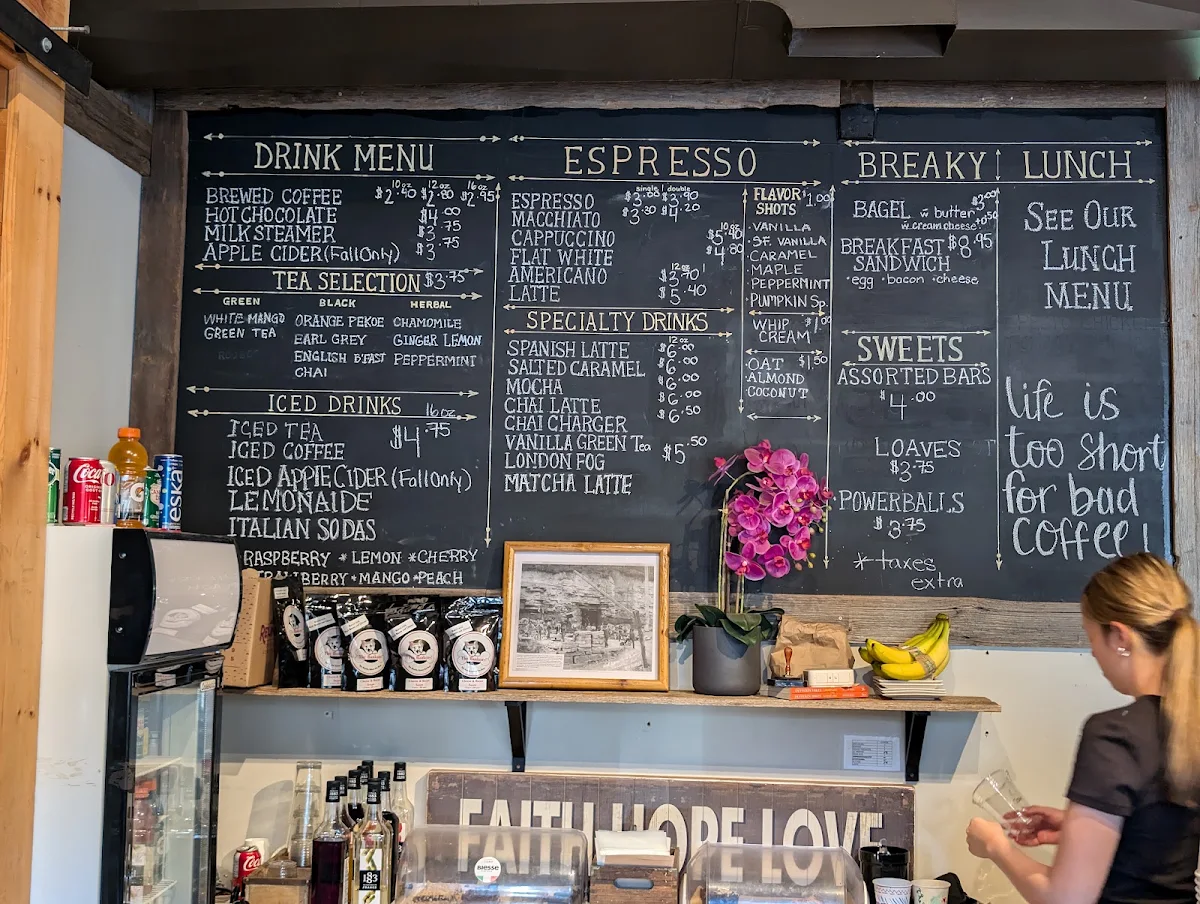 DRINK MENU
10oz 12oz 16oz
BREWED COFFEE $2.40 $2.80 $2.95
HOT CHOCOLATE $4.00
MILK STEAMER $3.75
APPLE CIDER (Fall Only) $3.75
TEA SELECTION $3.75
GREEN BLACK HERBAL
WHITE MANGO ORANGE PEKOE CHAMOMILE
GREEN TEA EARL GREY GINGER LEMON
ENGLISH B'FAST PEPPERMINT
CHAI
ICED DRINKS 16oz
ICED TEA $4.75
ICED COFFEE
ICED APPLE CIDER (Fall Only)
LEMONAIDE
ITALIAN SODAS
RASPBERRY * LEMON * CHERRY
MANGO * PEACH
ESPRESSO
single | double
ESPRESSO $3.00 $3.90
MACCHIATO $3.30 $4.20
CAPPUCCINO
FLAT WHITE $4.80
AMERICANO
LATTE $5.40
SPECIALTY DRINKS
12oz
SPANISH LATTE $6.00
SALTED CARAMEL $6.00
MOCHA $6.00
CHAI LATTE $6.00
CHAI CHARGER $6.50
VANILLA GREEN Tea
LONDON FOG $5.50
MATCHA LATTE
FLAVOR SHOTS $1.00
· VANILLA
· SF. VANILLA
· CARAMEL
· MAPLE
· PEPPERMINT
· PUMPKIN Sp.
WHIP CREAM $1.00
· OAT $1.50
· ALMOND
· COCONUT
BREAKY
BAGEL w butter $3.00
w cream cheese +.50
BREAKFAST $8.95
SANDWICH
· egg · bacon · cheese
SWEETS
ASSORTED BARS
$4.00
LOAVES
$3.75
POWERBALLS
$3.75
* taxes
extra
LUNCH
SEE OUR
LUNCH
MENU
life is
too short
for bad
coffee!
Coca-Cola
eska
FAITH HOPE LOVE
BIESSE
1883